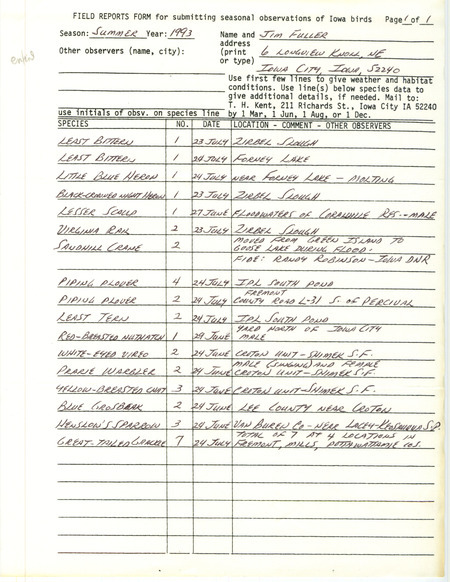 FIELD REPORTS FORM for submitting seasonal observations of Iowa birds Page 1 of 1
Season: SUMMER Year: 1993 Name and JIM FULLER
address
Other observers (name, city): (print 6 LONGVIEW KNOLL, NE
or type) IOWA CITY, IOWA, 52240
Use first few lines to give weather and habitat
conditions. Use line(s) below species data to
give additional details, if needed. Mail to:
T. H. Kent, 211 Richards St., Iowa City IA 52240
use initials of obsv. on species line by 1 Mar, 1 Jun, 1 Aug, or 1 Dec.
SPECIES NO. DATE LOCATION - COMMENT - OTHER OBSERVERS
LEAST BITTERN 1 23 JULY ZIRBEL SLOUGH
LEAST BITTERN 1 24 JULY FORNEY LAKE
LITTLE BLUE HERON 1 24 JULY NEAR FORNEY LAKE - MOLTING
BLACK-CROWNED NIGHT HERON 1 23 JULY ZIRBEL SLOUGH
LESSER SCAUP 1 27 JUNE FLOODWATERS OF CORALVILLE RES. - MALE
VIRGINIA RAIL 2 23 JULY ZIRBEL SLOUGH
SANDHILL CRANE 2 MOVED FROM GREEN ISLAND TO
GOOSE LAKE DURING FLOOD.
FIDE: RANDY ROBINSON - IOWA DNR
PIPING PLOVER 4 24 JULY IPL SOUTH POND
FREMONT
PIPING PLOVER 2 24 JULY COUNTY ROAD L-31 S. OF PERCIVAL
LEAST TERN 2 24 JULY IPL SOUTH POND
YARD NORTH OF IOWA CITY
RED-BREASTED NUTHATCH 1 29 JUNE MALE
WHITE-EYED VIREO 2 24 JUNE CROTON UNIT - SHIMEK S.F.
MALE (SINGING) AND FEMALE
PRARIE WARBLER 2 24 JUNE CROTON UNIT - SHIMEK S.F.
YELLOW-BREASTED CHAT 3 24 JUNE CROTON UNIT - SHIMEK S.F.
BLUE GROSBEAK 2 24 JUNE LEE COUNTY NEAR CROTON
HENSLOW'S SPARROW 3 24 JUNE VAN BUREN CO - NEAR LACEY-KEOSAUQUA S.P.
TOTAL OF 7 AT 4 LOCATIONS IN
GREAT-TAILED GRACKLE 7 24 JULY FREMONT, MILLS, POTTAWATTAMIE COS.